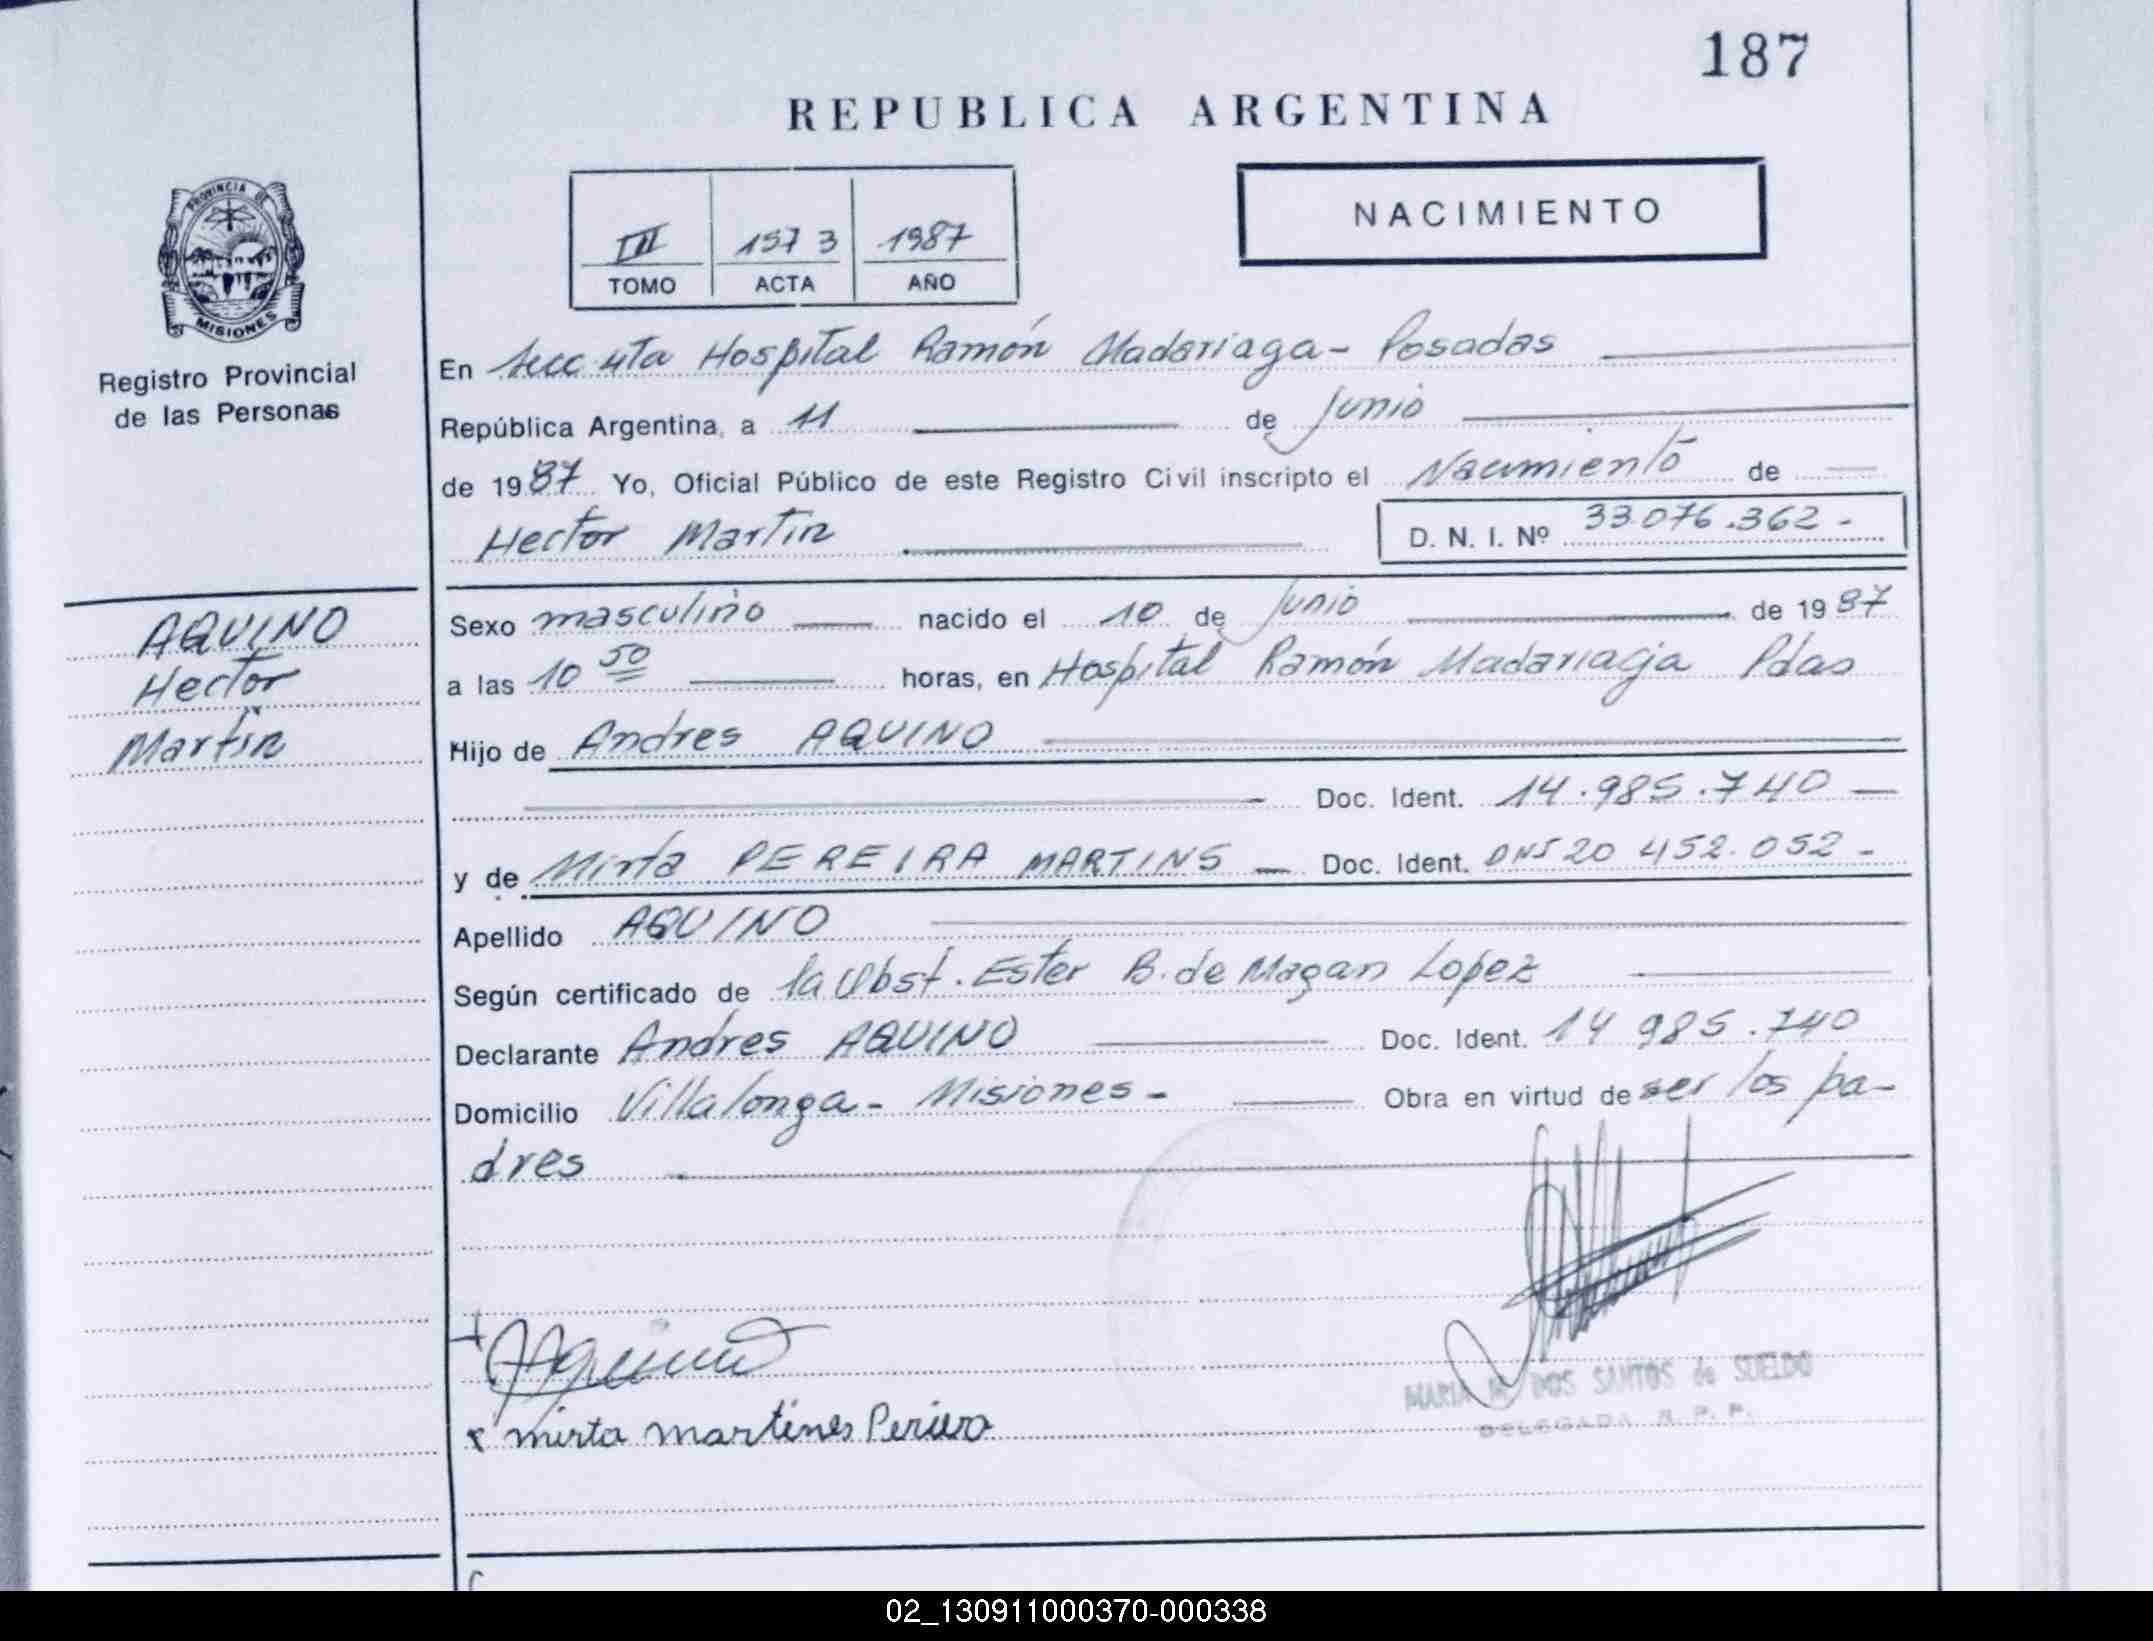 187
REPUBLICA ARGENTINA
NACIMIENTO
III 1573 1987
TOMO ACTA AÑO
PROVINCIA DE
MISIONES
Registro Provincial
de las Personas
En Secc 4ta Hospital Ramón Madariaga - Posadas
República Argentina, a 11 de Junio
de 1987 Yo, Oficial Público de este Registro Civil inscripto el Nacimiento de
Hector Martin D. N. I. Nº 33.076.362-
AQUINO
Hector
Martin
Sexo masculino nacido el 10 de Junio de 1987
a las 10 50 horas, en Hospital Ramón Madariaga Pdas
Hijo de Andres AQUINO
Doc. Ident. 14.985.740
y de Mirta PEREIRA MARTINS - Doc. Ident. DNI 20 452.052-
Apellido AQUINO
Según certificado de la Obst. Ester B. de Magan Lopez
Declarante Andres AQUINO Doc. Ident. 14 985.740
Domicilio Villalonga - Misiones - Obra en virtud de ser los pa-
dres
Aquino
x mirta martines
MARIA DOS SANTOS de SUELDO
DELEGADA R. P. P.
02_130911000370-000338